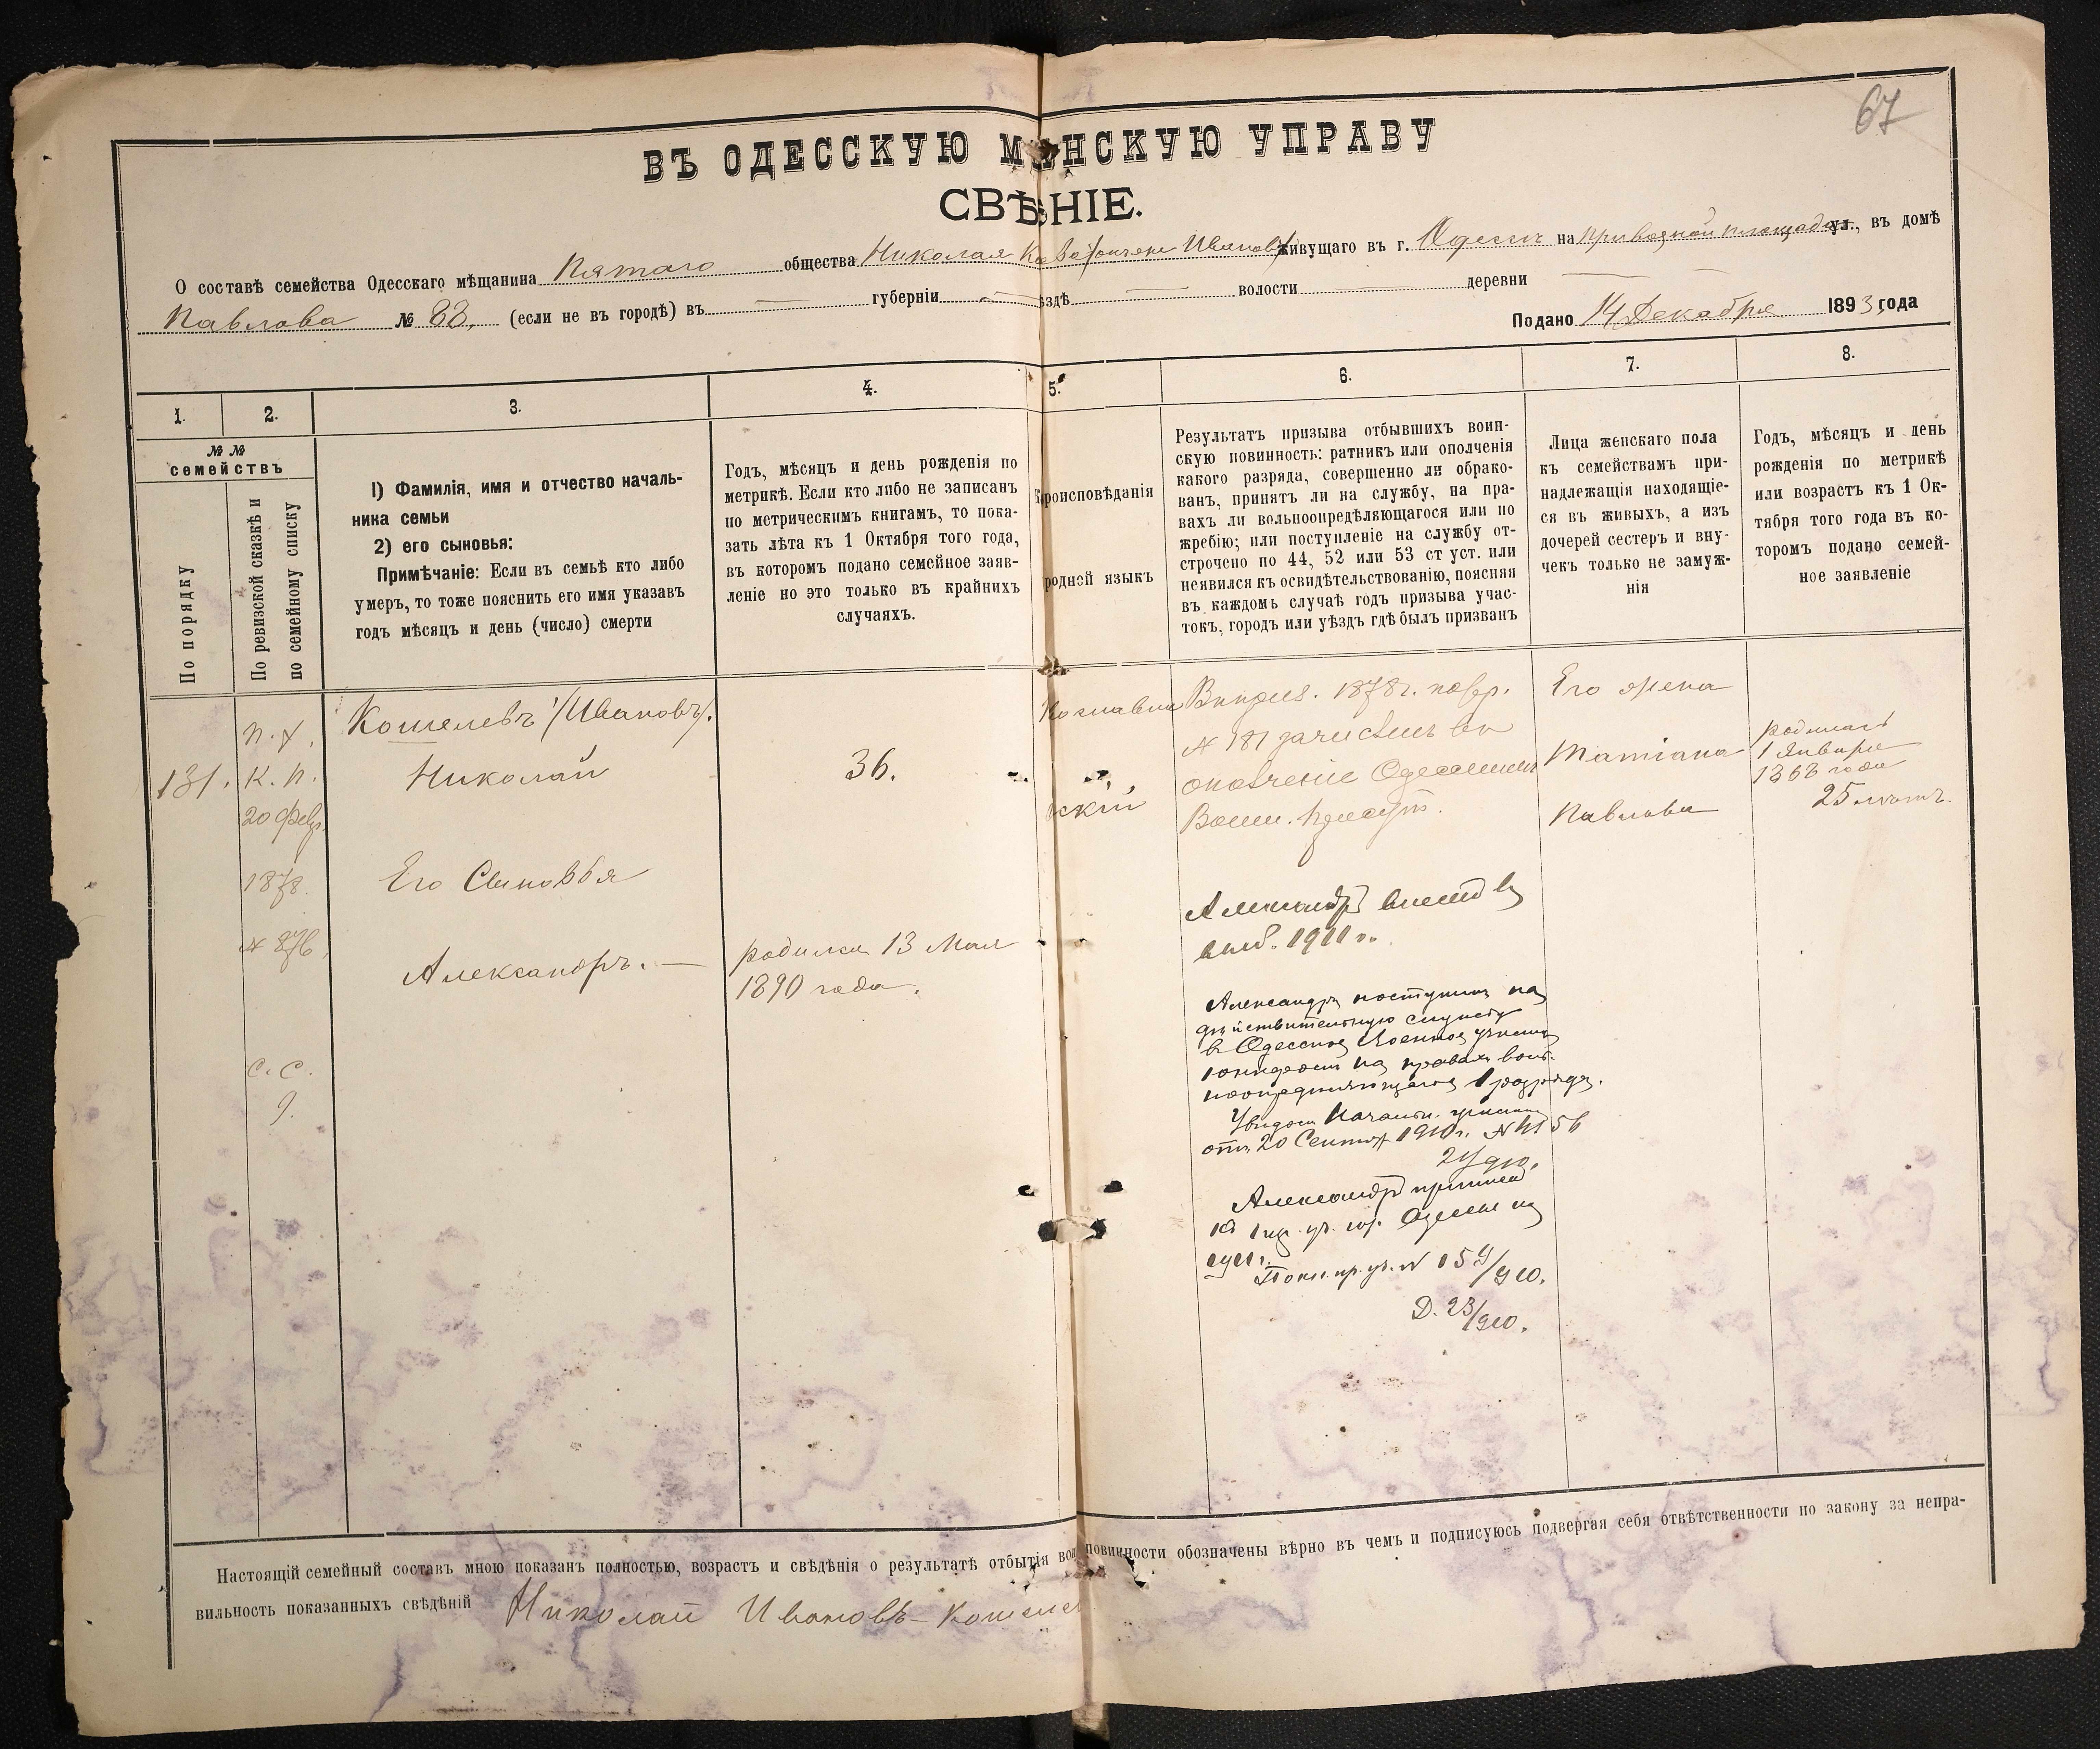 67
ВЪ ОДЕССКУЮ М НСКУЮ УПРАВУ
СВѢ НІЕ.
О составѣ семейства Одесскаго мѣщанина Пятаго общества Николая живущаго въ г. Одессѣ на Привозной площади ул., въ домѣ
Павлова № 83. (если не въ городѣ) въ — губерніи — ѣздѣ — волости — деревни —
Подано 14 Декабря 1893 года
1.
2.
3.
4.
5.
6.
7.
8.
№ №
семействъ
По порядку
По ревизской сказкѣ и
по семейному списку
1) Фамилія, имя и отчество началь-
ника семьи
2) его сыновья:
Примѣчаніе: Если въ семьѣ кто либо
умеръ, то тоже пояснить его имя указавъ
годъ мѣсяцъ и день (число) смерти
Годъ, мѣсяцъ и день рожденія по
метрикѣ. Если кто либо не записанъ
по метрическимъ книгамъ, то пока-
зать лѣта къ 1 Октября того года,
въ которомъ подано семейное заяв-
леніе но это только въ крайнихъ
случаяхъ.
роисповѣданія
родной языкъ
Результатъ призыва отбывшихъ воин-
скую повинность: ратникъ или ополченія
какого разряда, совершенно ли обрако-
ванъ, принятъ ли на службу, на пра-
вахъ ли вольноопредѣляющагося или по
жребію; или поступленіе на службу от-
строчено по 44, 52 или 53 ст уст. или
неявился къ освидѣтельствованію, поясняя
въ каждомъ случаѣ годъ призыва учас-
токъ, городъ или уѣздъ гдѣ былъ призванъ
Лица женскаго пола
къ семействамъ при-
надлежащія находящіе-
ся въ живыхъ, а изъ
дочерей сестеръ и вну-
чекъ только не замуж-
нія
Годъ, мѣсяцъ и день
рожденія по метрикѣ
или возрастъ къ 1 Ок-
тября того года въ ко-
торомъ подано семей-
ное заявленіе
131.
К. п.
20 Февр.
1878.
№ 876.
С. С.
9.
Кошелевъ /Ивановъ/.
Николай
36.
скій
1878 г.
№ 181 зачисленъ въ
ополченіе
Его жена
Татіана
Павлова
родилась
1 Января
1868 года
25 лѣтъ.
Его Сыновья
Александръ. —
родился 13 Мая
1890 года.
Александръ внесенъ въ
1911 г.
Александръ поступилъ на
дѣйствительную службу
въ Одесское Военное училище
юнкеромъ на правахъ воль-
ноопредѣляющагося 1 разряда.
Увѣдом. Начальн. училища
отъ 20 Сентяб. 1910 г. №
Александръ
пр. уч. гор. Одессы
пр. уч. № 159/910.
Д. 23/910.
Настоящій семейный составъ мною показанъ полностью, возрастъ и свѣдѣнія о результатѣ отбытія во повинности обозначены вѣрно въ чемъ и подписуюсь подвергая себя отвѣтственности по закону за непра-
вильность показанныхъ свѣдѣній Николай Ивановъ-Кошеле